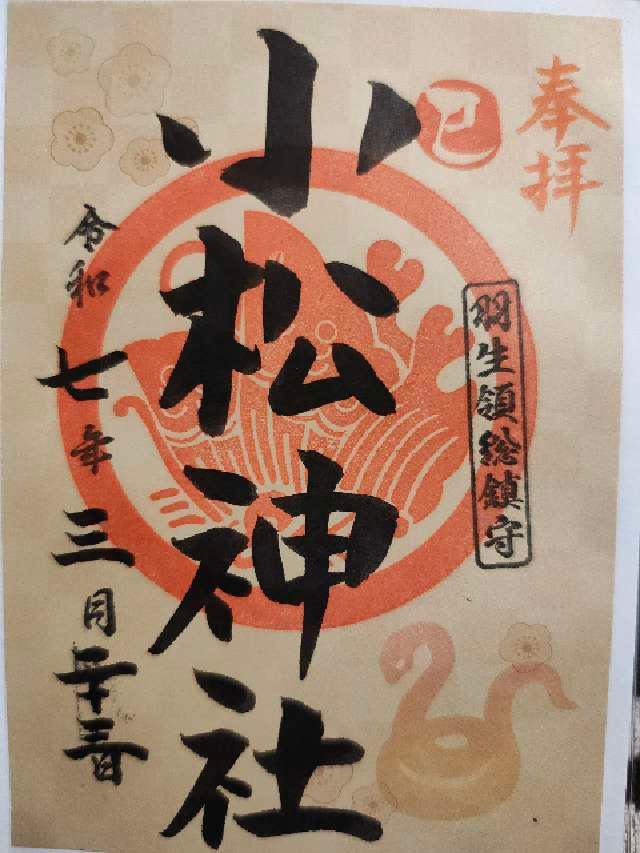 奉拝
巳
羽生領総鎮守
小松神社
令和七年三月二十三日